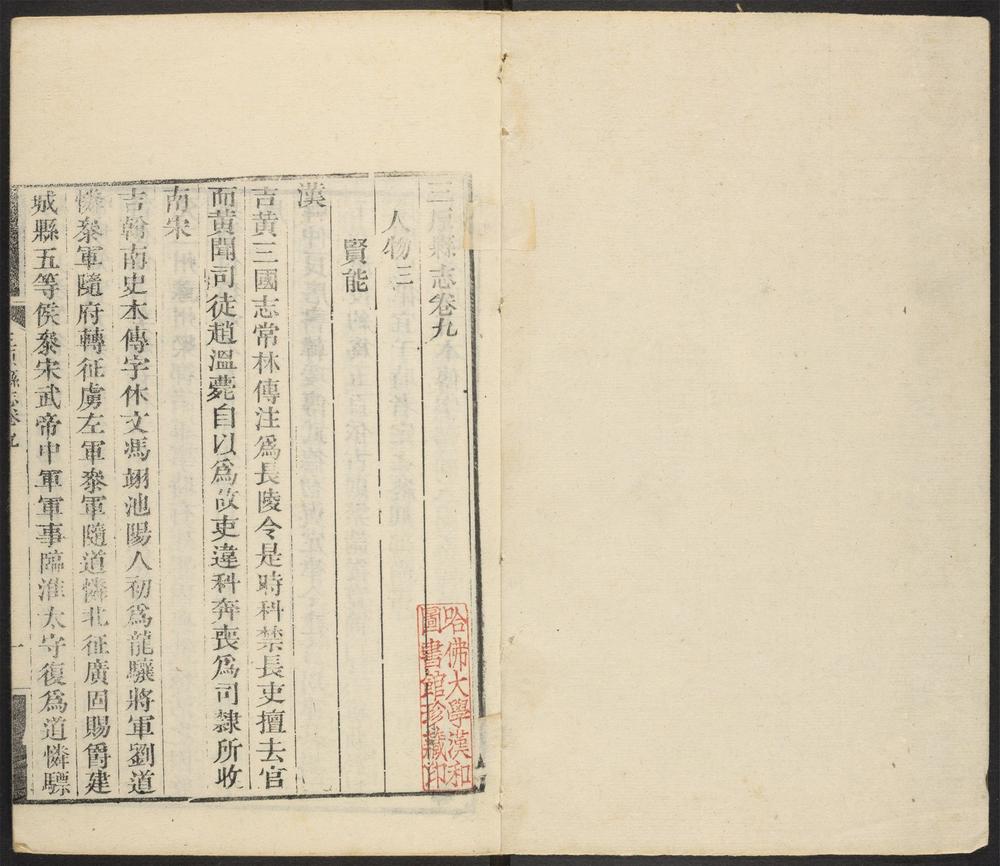 三原縣志卷九
人物三
賢能
漢
吉黄三國志常林傳注爲長陵令是時科禁長吏擅去官
而黄聞司徒趙溫薨自以爲故吏違科奔喪爲司隸所收
南宋
吉翰南史本傳字休文馮翊池陽人初爲龍驤將軍劉道
憐叅軍隨府轉征虜左軍叅軍隨道憐北征廣固賜爵建
城縣五等侯叅宋武帝中軍軍事臨淮太守復爲道憐驃
三原縣志卷九
一
哈佛大學漢和
圖書館珍藏印